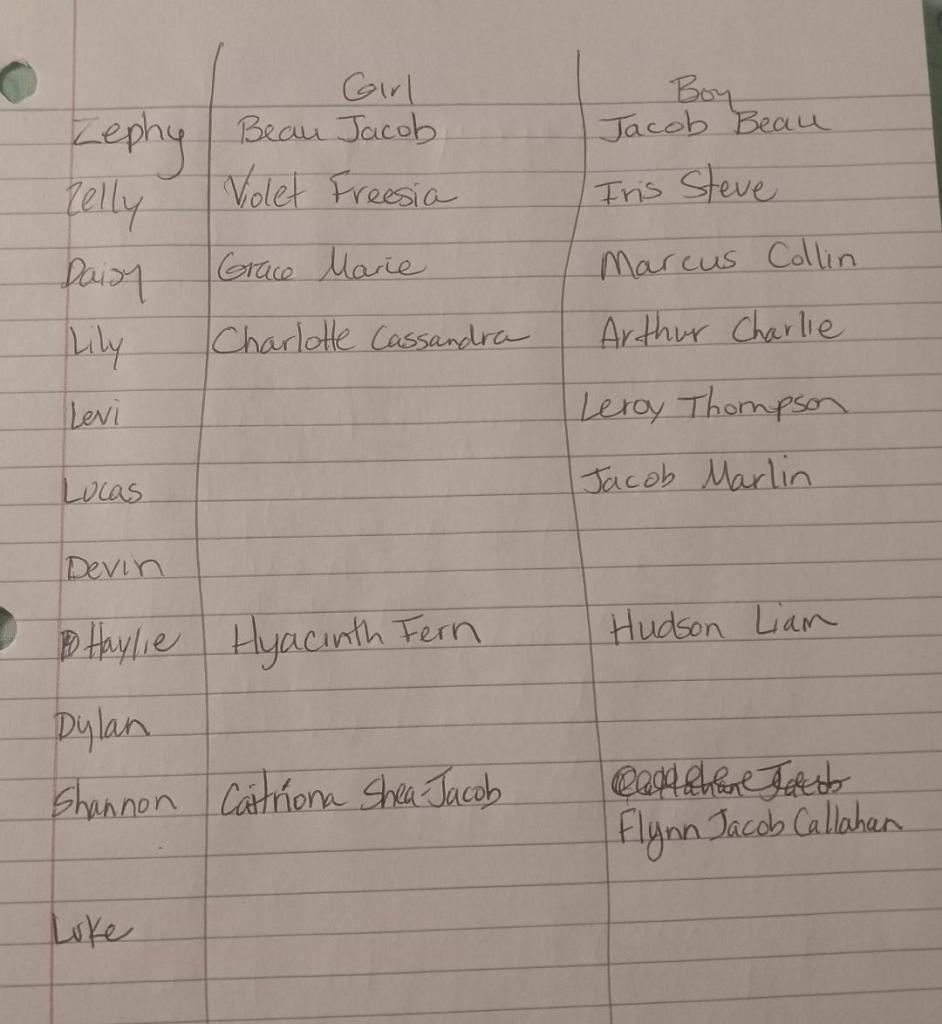 Girl Boy
Zephy Beau Jacob Jacob Beau
Zelly Violet Freesia Iris Steve
Daisy Grace Marie Marcus Collin
Lily Charlotte Cassandra Arthur Charlie
Levi Leroy Thompson
Lucas Jacob Marlin
Devin
Haylie Hyacinth Fern Hudson Liam
Dylan
Shannon Caitríona Shea-Jacob
Flynn Jacob Callahan
Luke